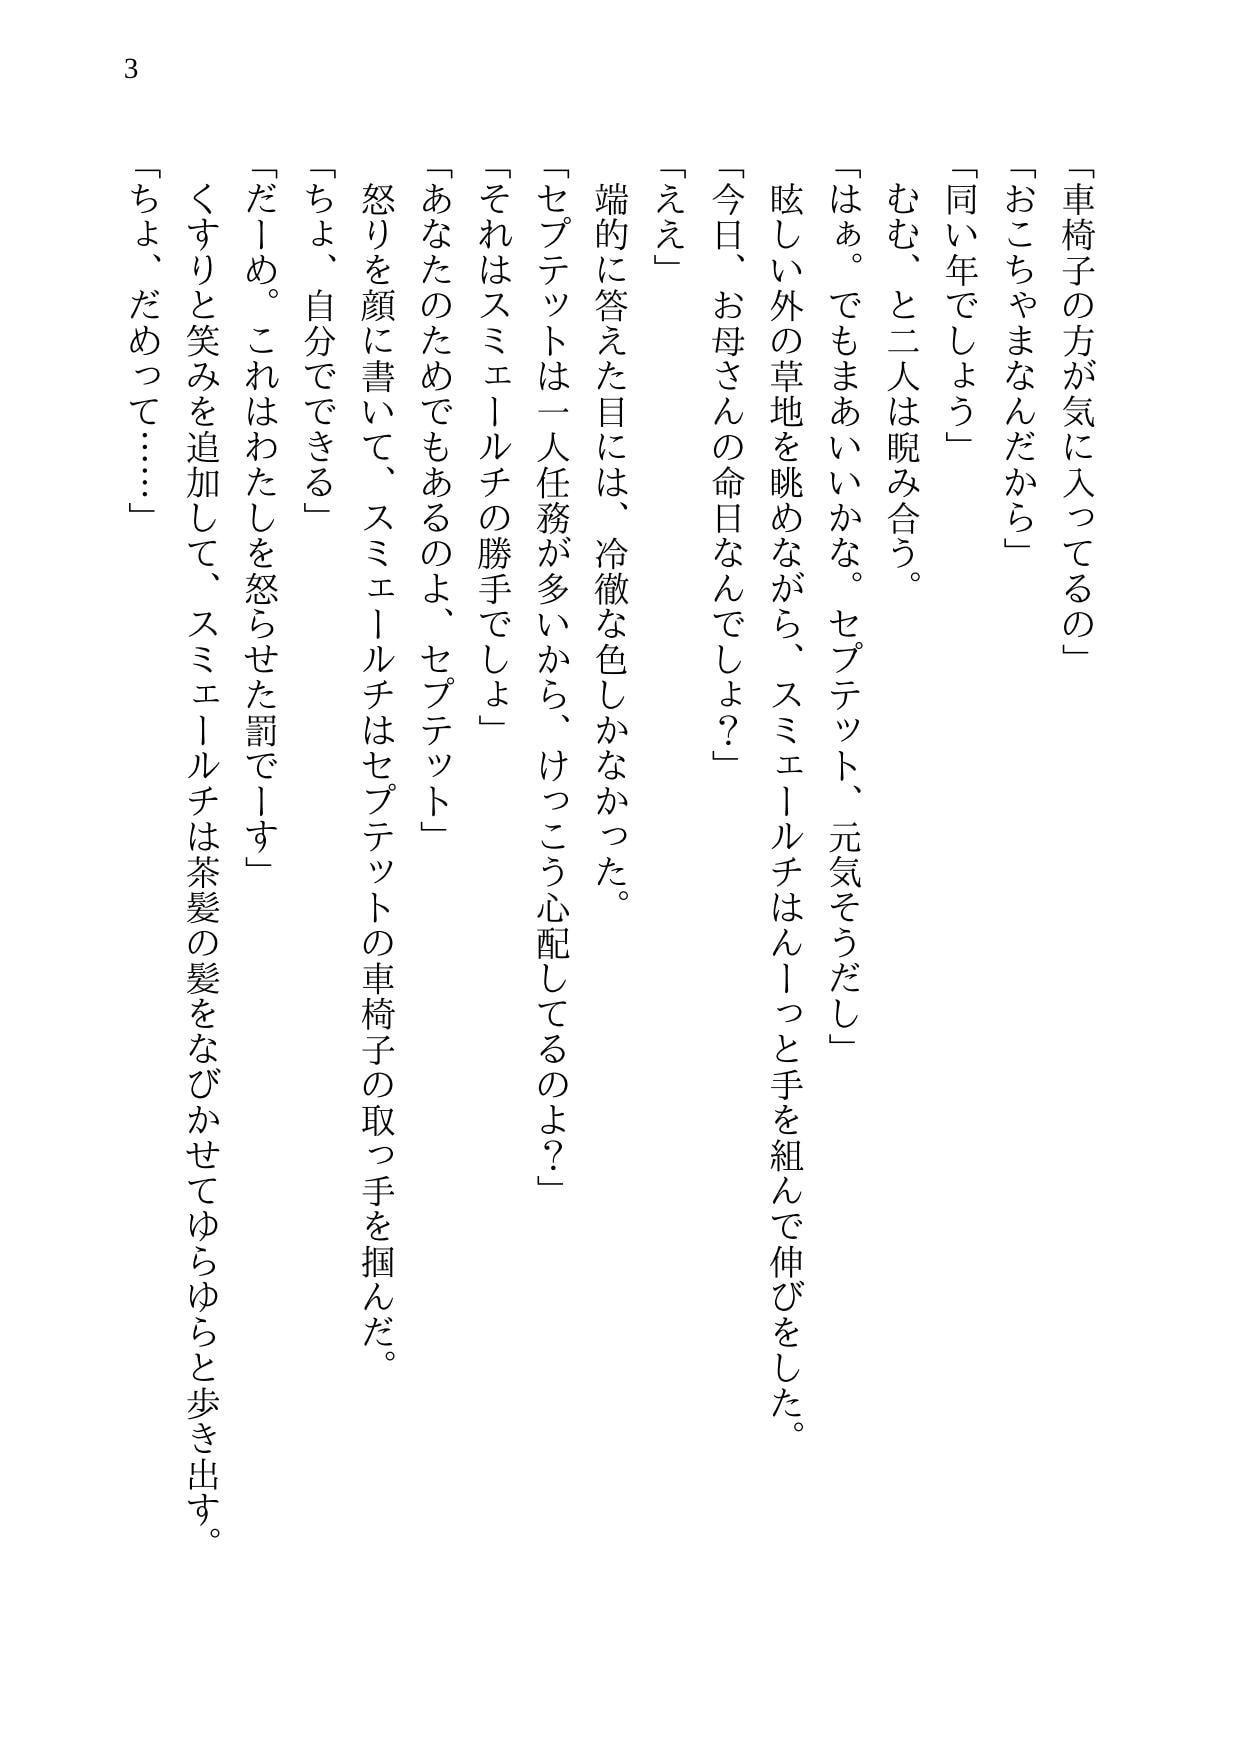 3
「車椅子の方が気に入ってるの」
「おこちゃまなんだから」
「同い年でしょう」
　むむ、と二人は睨み合う。
「はぁ。でもまあいいかな。セプテット、元気そうだし」
　眩しい外の草地を眺めながら、スミェールチはんーっと手を組んで伸びをした。
「今日、お母さんの命日なんでしょ？」
「ええ」
　端的に答えた目には、冷徹な色しかなかった。
「セプテットは一人任務が多いから、けっこう心配してるのよ？」
「それはスミェールチの勝手でしょ」
「あなたのためでもあるのよ、セプテット」
　怒りを顔に書いて、スミェールチはセプテットの車椅子の取っ手を掴んだ。
「ちょ、自分でできる」
「だーめ。これはわたしを怒らせた罰でーす」
　くすりと笑みを追加して、スミェールチは茶髪の髪をなびかせてゆらゆらと歩き出す。
「ちょ、だめって……」